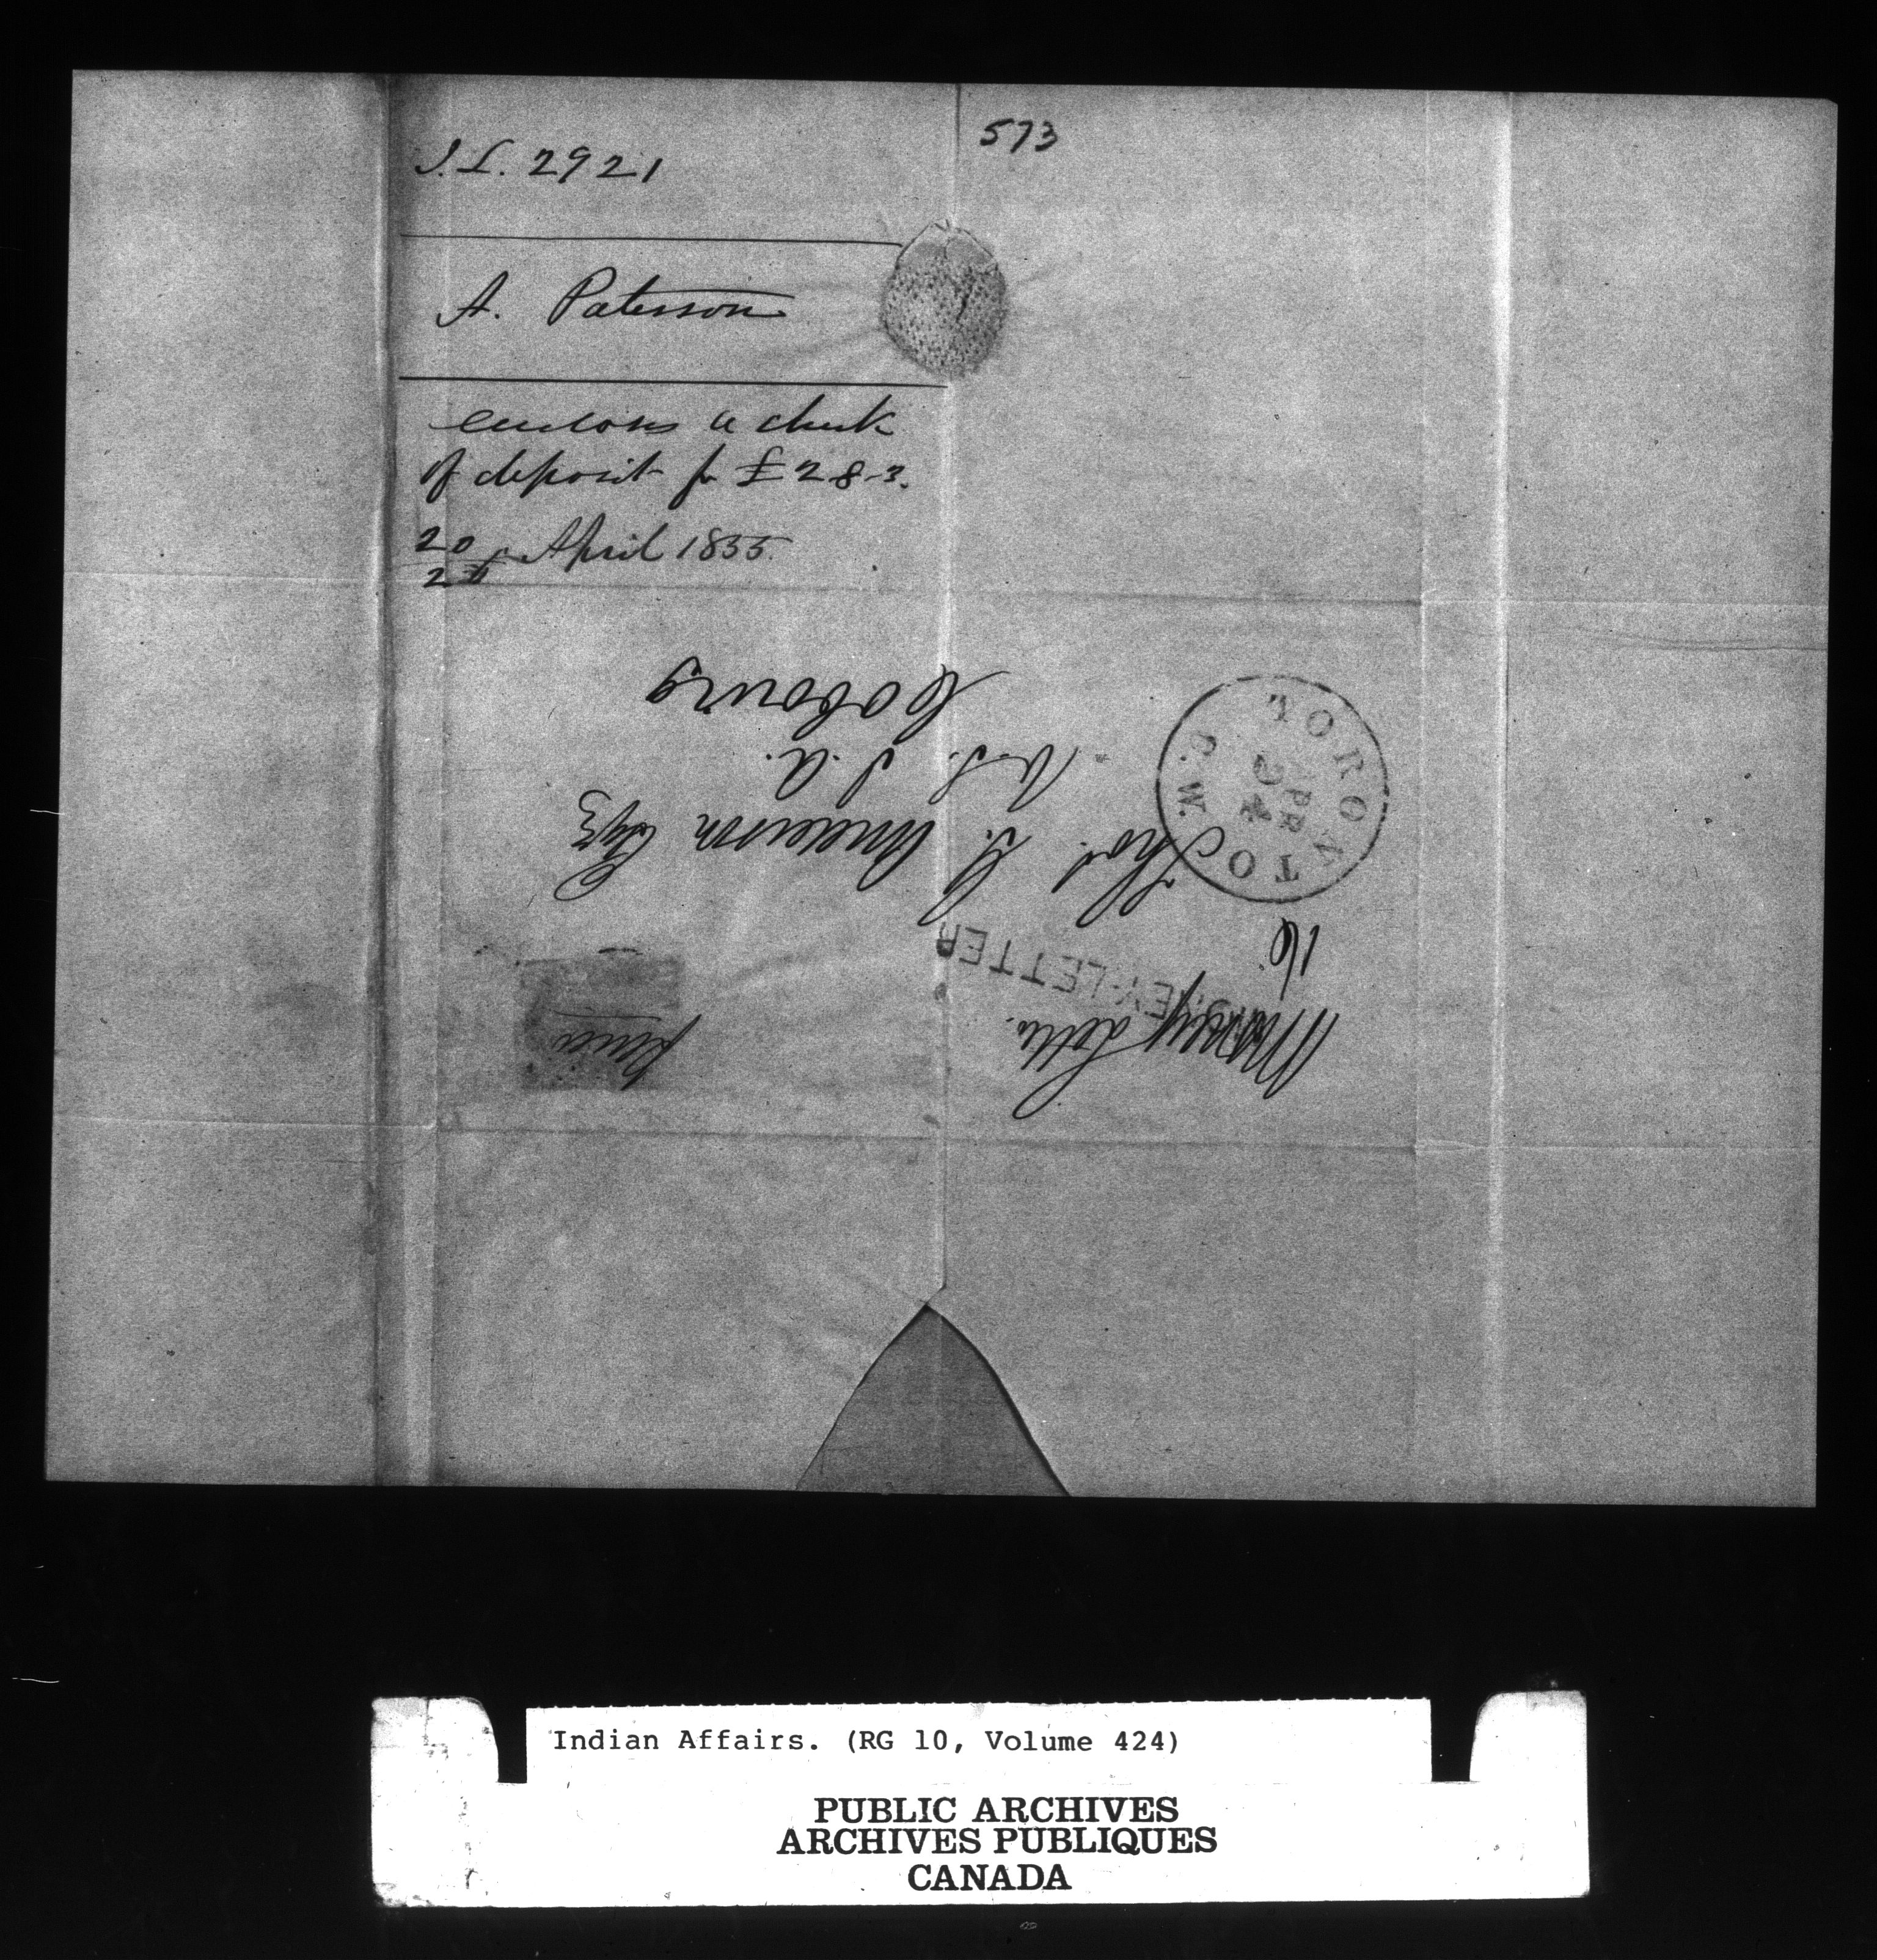 573
I.L. 2921
A. Paterson
encloses a check
of deposit for £28-3.
20
24 April 1855.
Money Letter.
MONEY-LETTER
16
Thos. G. Anderson Esq
V.S. I.A.
Cobourg
TORONTO C.W.
AP R
24
Indian Affairs. (RG 10, Volume 424)
PUBLIC ARCHIVES
ARCHIVES PUBLIQUES
CANADA